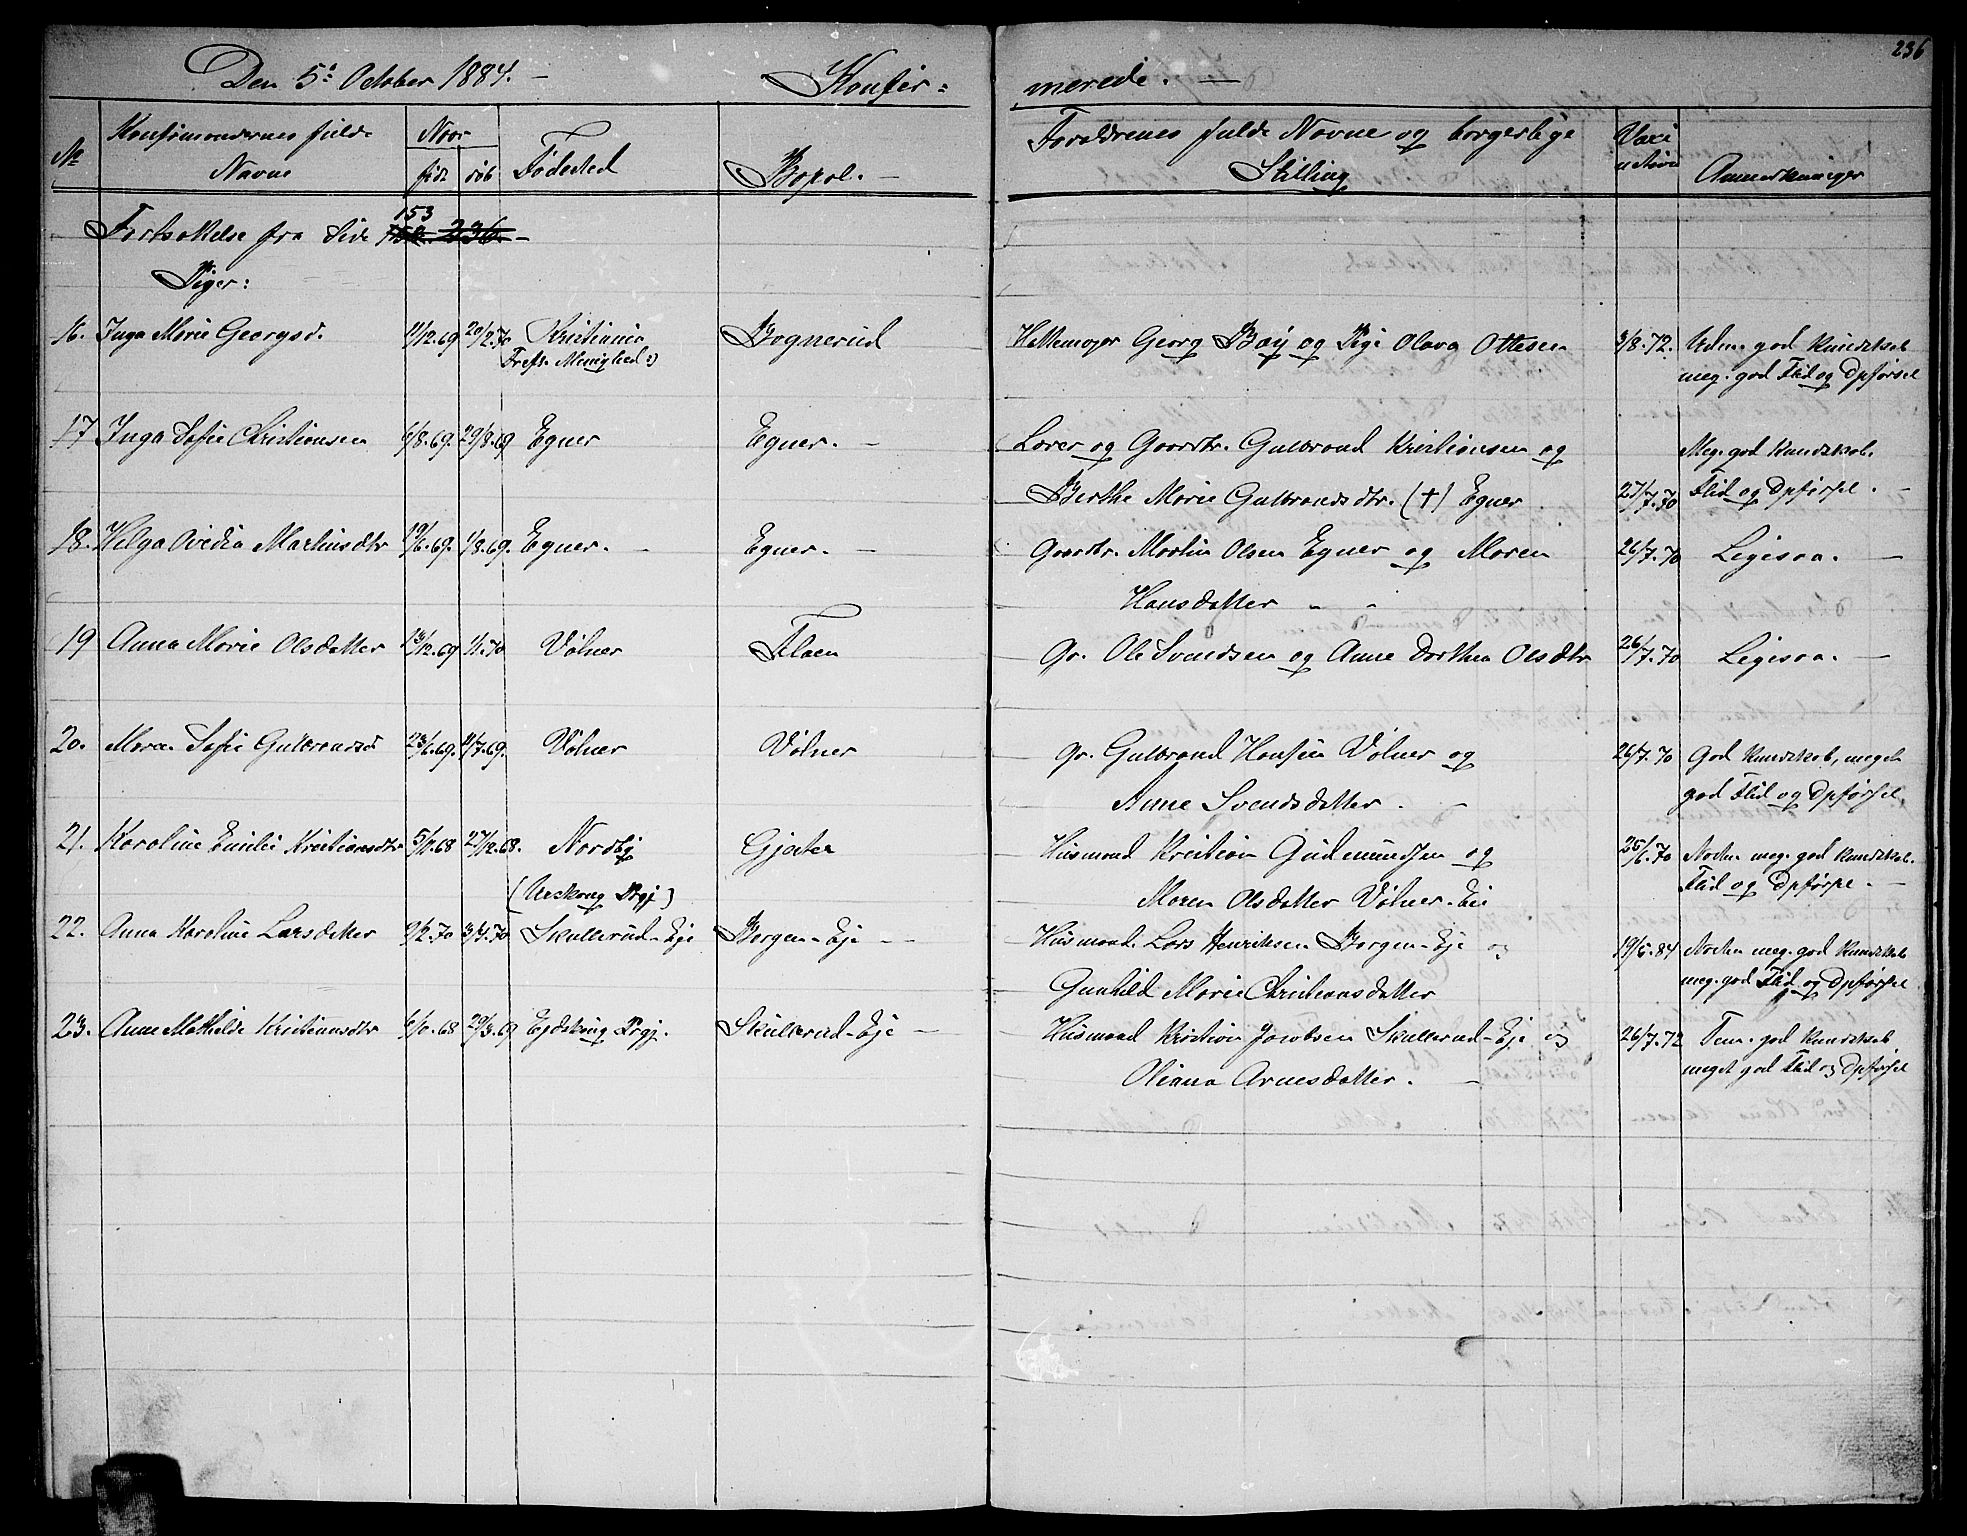 236
Den 5t October 1884. — Konfir= merede. —
No Konfirmandernes fulde Navne Naar født døbt Fødested Bopæl. — Forældrenes fulde Navne og borgerlige Stilling Vaccination Anmærkninger
Fortsættelse fra Side 153
Piger:
16. Inga Marie Georgsd. 11/12.69 20/2.70 Kristiania Bognerud Hattemager Georg Bay og Pige Olava Ottesen 3/8.72. Udm. god Kundskab
Trefk. Menighed:) meg. god Flid og Opførsel
17 Inga Sofie Christiansen 6/8.69. 29/8.69 Egner Egner. — Laver og Gaardbr. Gulbrand Kristiansen og Meg. god Kundskab.
Berthe Marie Gulbrandsdtr. (†) Egner 27/7.70 Flid og Opførsel. —
18. Helga Ovedia Martinsdtr 19/6.69. 1/8.69. Egner. — Egner. — Gaardbr. Martin Olsen Egner og Maren 26/7.70 Ligesaa. —
Hansdatter " "
19 Anna Marie Olsdatter 13/12.69 1/1.70 Vølner Flaen Gr. Ole Svendsen og Anne Dorthea Olsdtr 26/7.70 Ligesaa. —
20. Maren Sofie Gulbrandsd 23/6.69. 11/7.69. Vølner Vølner Gr. Gulbrand Hansen Vølner og 26/7.70 God Kundskab, meget
Anne Svendsdatter. — god Flid og Opførsel.
21. Karoline Emilie Kristiansdtr 5/11.68 27/12.68. Nordby Gjester Husmand Kristian Gudmundsen og 25/6.70 Noden meg. god Kundskab.
(Urskoug Prgj) Maren Olsdatter Vølner-Eie Flid og Opførsel. —
22. Anna Karoline Larsdatter 9/2.70 3/4.70 Skullerud-Eje Borgen-Eje - - Husmand. Lars Henriksen Borgen-Eje og 19/5.84 Noden meg. god Kundskab
Gunhild Marie Christiansdatter meg. god Flid og Opførsel
23. Anne Mathilde Kristiansdtr 6/10.68 29/3.69 Eidskoug Prgj. Skullerud-Eje — Husmand Kristian Jacobsen Skullerud-Eje og 26/7.72 Tem. god Kundskab
Oliana Arnesdatter. — meget god Flid og Opførsel